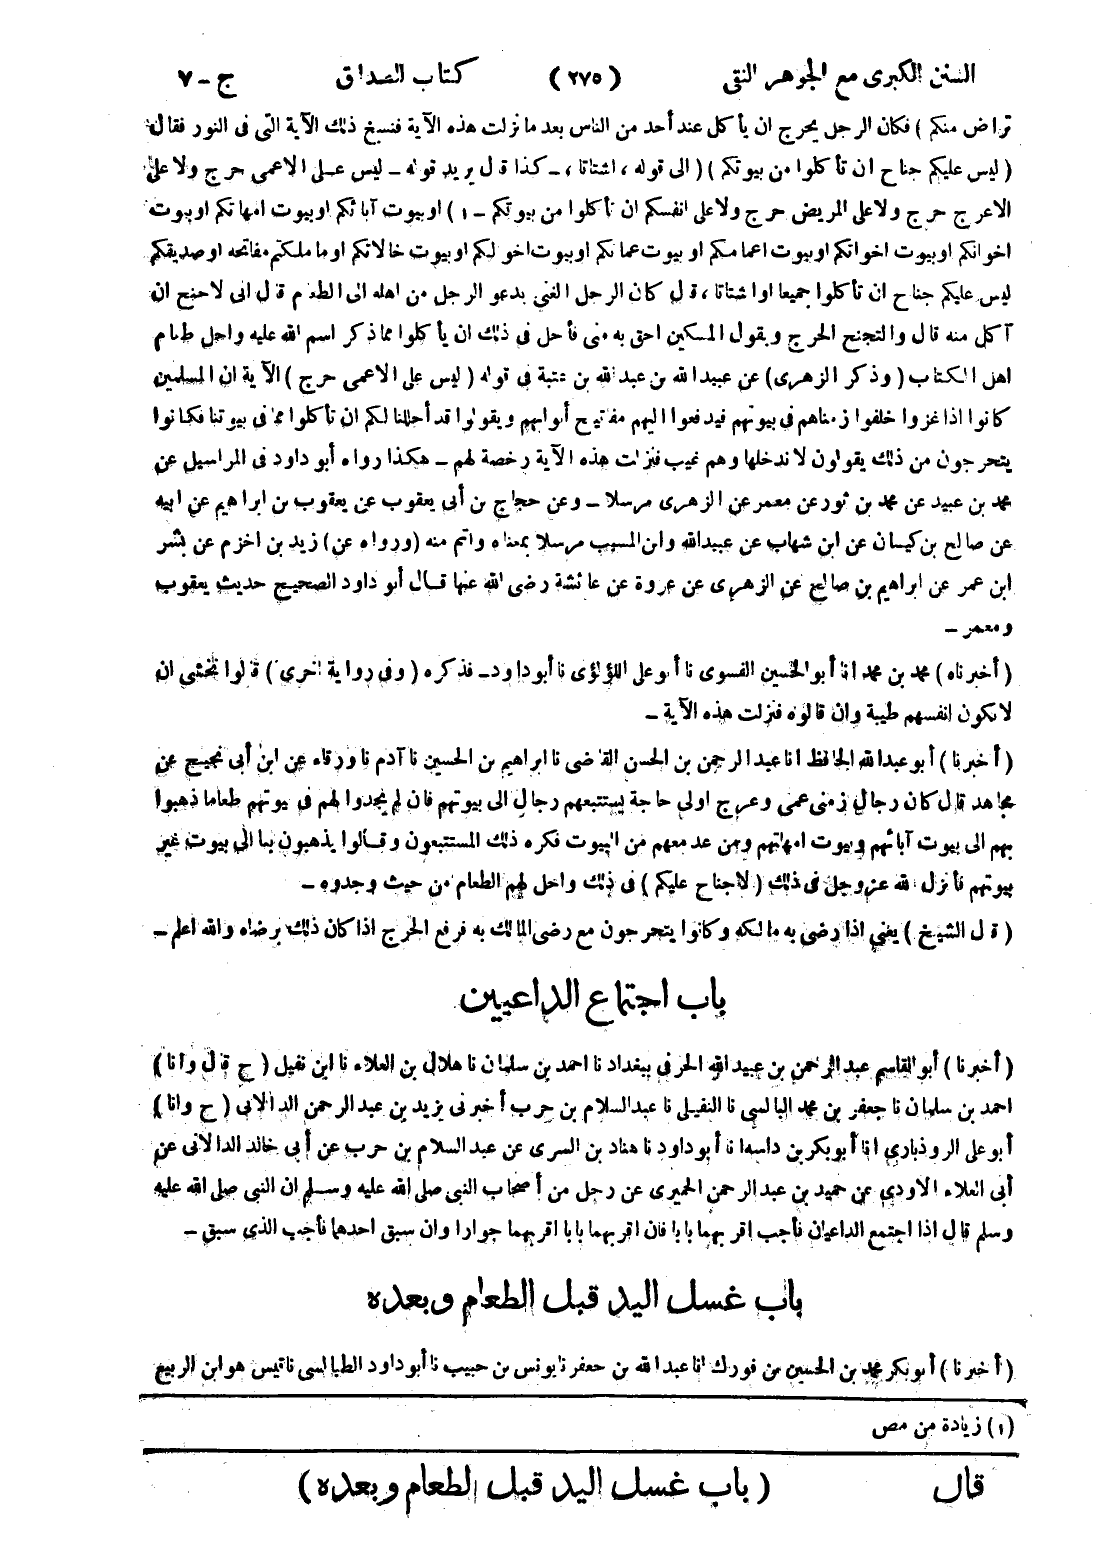 السنن الكبرى مع الجوهر النقى (٢٧٥) كتاب الصداق ج ـ ٧
تراض منكم ) فكان الرجل يحرج ان يأكل عند أحد من الناس بعد ما نزلت هذه الآية فنسخ ذلك الآية التى فى النور فقال
( ليس عليكم جناح ان تأكلوا من بيوتكم ) ( الى قوله ، اشتاتا ، ـ كذا قال يريد قوله ـ ليس على الاعمى حرج ولا على
الاعرج حرج ولا على المريض حرج ولا على انفسكم ان تأكلوا من بيوتكم ـ ١ ) او بيوت آبائكم او بيوت امهاتكم او بيوت
اخوانكم او بيوت اخواتكم او بيوت اعمامكم او بيوت عماتكم او بيوت اخوالكم او بيوت خالاتكم او ما ملكتم مفاتحه او صديقكم
ليس عليكم جناح ان تأكلوا جميعا او اشتاتا ، قال كان الرجل الغنى يدعو الرجل من اهله الى الطعام قال انى لاجنح ان
آكل منه قال والتجنح الحرج ويقول المسكين احق به منى فأحل فى ذلك ان يأكلوا مما ذكر اسم الله عليه واحل طعام
اهل الكتاب ( وذكر الزهرى ) عن عبيد الله بن عبد الله بن عتبة فى قوله ( ليس على الاعمى حرج ) الآية ان المسلمين
كانوا اذا غزوا خلفوا زمناهم فى بيوتهم فيدفعوا اليهم مفاتيح أبوابهم ويقولوا قد أحللنا لكم ان تأكلوا مما فى بيوتنا فكانوا
يتحرجون من ذلك يقولون لا ندخلها وهم غيب فنزلت هذه الآية رخصة لهم ـ هكذا رواه أبو داود فى المراسيل عن
محمد بن عبيد عن محمد بن ثور عن معمر عن الزهرى مرسلا ـ وعن حجاج بن أبى يعقوب عن يعقوب بن ابراهيم عن ابيه
عن صالح بن كيسان عن ابن شهاب عن عبيد الله وابن المسيب مرسلا بمعناه واتم منه ( ورواه عن ) زيد بن اخزم عن بشر
ابن عمر عن ابراهيم بن صالح عن الزهرى عن عروة عن عائشة رضى الله عنها قال أبو داود الصحيح حديث يعقوب
ومعمر ـ
( أخبرناه ) محمد بن محمد انا أبو الحسين الفسوى نا أبو على اللؤلؤى نا أبو داود ـ فذكره ( وفى رواية اخرى ) قالوا نخشى ان
لا تكون انفسهم طيبة وان قالوه فنزلت هذه الآية ـ
( أخبرنا ) أبو عبد الله الحافظ انا عبد الرحمن بن الحسن القاضى نا ابراهيم بن الحسين نا آدم نا ورقاء عن ابن أبى نجيح عن
مجاهد قال كان رجال زمنى عمى وعرج اولى حاجة يستتبعهم رجال الى بيوتهم فان لم يجدوا لهم فى بيوتهم طعاما ذهبوا
بهم الى بيوت آبائهم وبيوت امهاتهم ومن عدد معهم من البيوت فكره ذلك المستتبعون وقالوا يذهبون بنا الى بيوت غير
بيوتهم فأنزل الله عز وجل فى ذلك ( لا جناح عليكم ) فى ذلك واحل لهم الطعام من حيث وجدوه ـ
( قال الشيخ ) يعنى اذا رضى به مالكه وكانوا يتحرجون مع رضى المالك به فرفع الحرج اذا كان ذلك برضاه والله اعلم ـ
باب اجتماع الداعيين
( أخبرنا ) أبو القاسم عبد الرحمن بن عبيد الله الحرفى ببغداد نا احمد بن سلمان نا هلال بن العلاء نا ابن نفيل ( ح قال وانا )
احمد بن سلمان نا جعفر بن محمد البالسى نا النفيلى نا عبد السلام بن حرب أخبرنى يزيد بن عبد الرحمن الدالانى ( ح وانا )
أبو على الروذبارى انا أبو بكر بن داسه انا أبو داود نا هناد بن السرى عن عبد السلام بن حرب عن أبى خالد الدالانى عن
أبى العلاء الاودى عن حميد بن عبد الرحمن الحميرى عن رجل من أصحاب النبى صلى الله عليه وسلم ان النبى صلى الله عليه
وسلم قال اذا اجتمع الداعيان فأجب اقربهما بابا فان اقربهما بابا اقربهما جوارا وان سبق احدهما فأجب الذى سبق ـ
باب غسل اليد قبل الطعام وبعده
( أخبرنا ) أبو بكر محمد بن الحسين بن فورك انا عبد الله بن جعفر نا يونس بن حبيب نا أبو داود الطيالسى نا قيس هو ابن الربيع
(١) زيادة من مص
قال ( باب غسل اليد قبل الطعام وبعده )